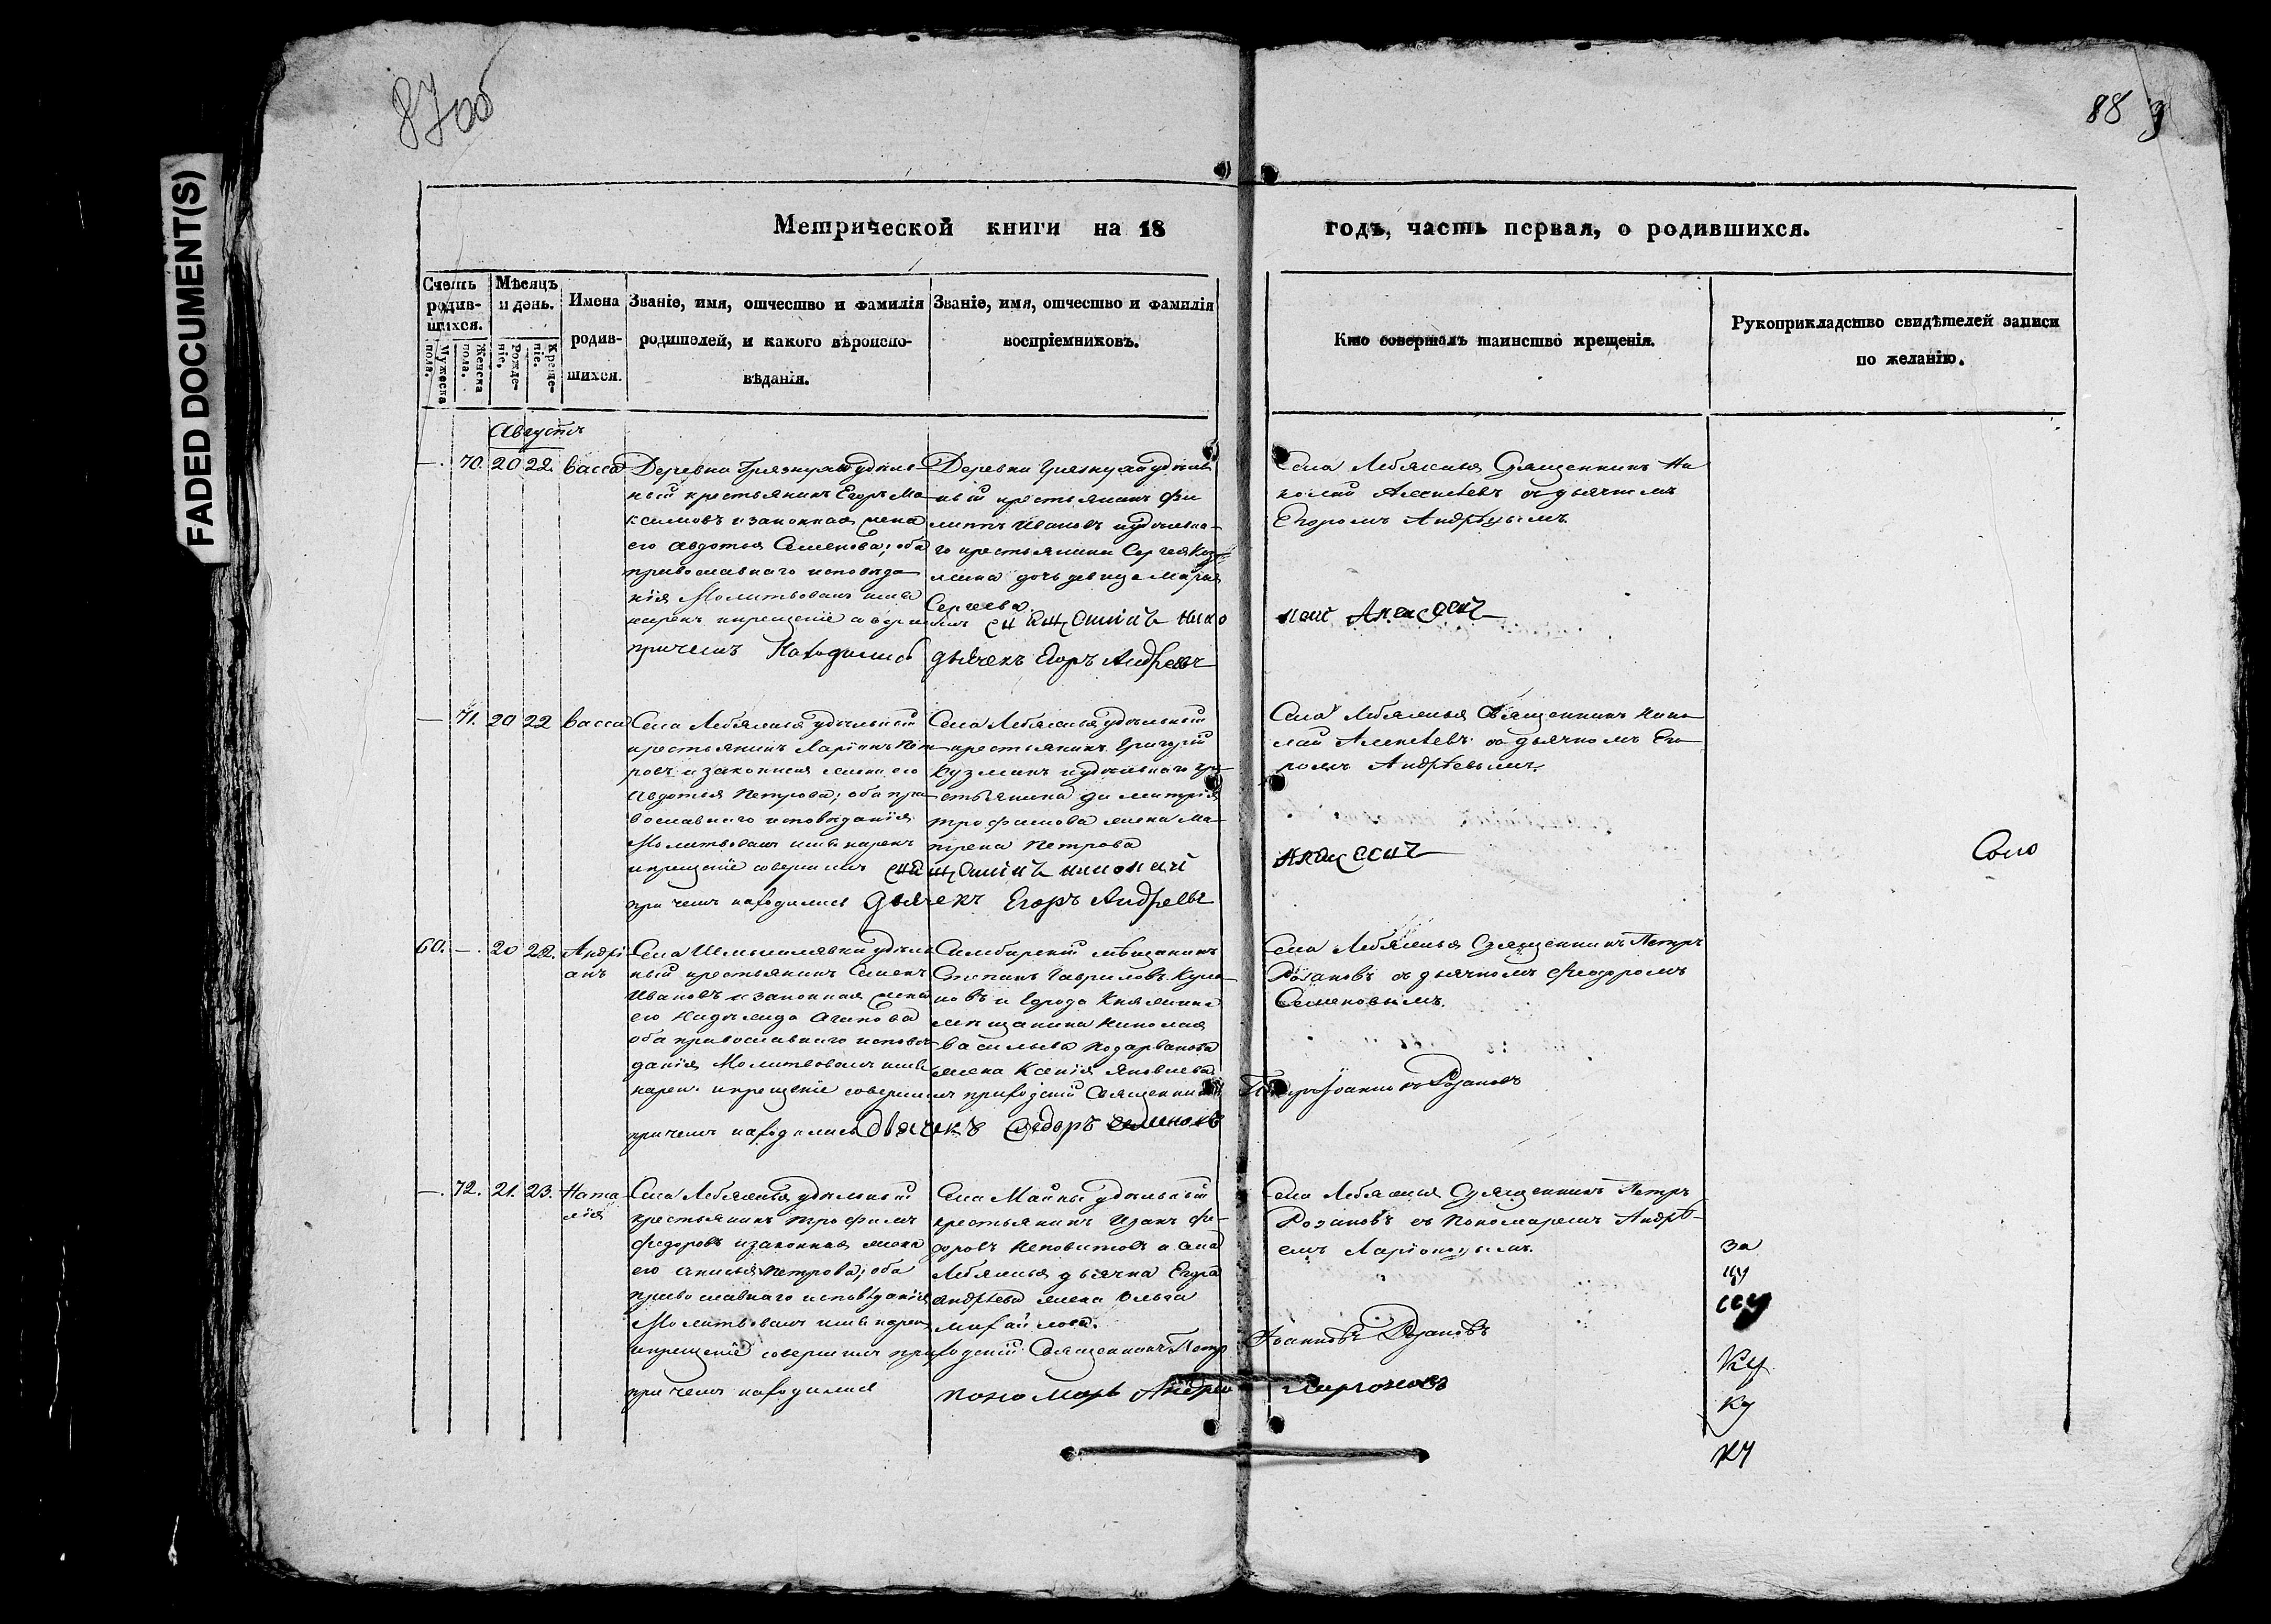 87об
88
FADED DOCUMENT(S)
Метрической книги на 18 годъ, часть первая, о родившихся.
Счетъ родив-шихся.
Мужеска пола.
Женска пола.
Мѣсяцъ и день.
Рожде-ніе.
Креще-ніе.
Имена родив-шихся.
Званіе, имя, отчество и фамилія родителей, и какого вѣроиспо-вѣданія.
Званіе, имя, отчество и фамилія воспріемниковъ.
Кто совершалъ таинство крещенія.
Рукоприкладство свидѣтелей записи по желанію.
Августъ
—. 70. 20 22. Васса
Деревни Грязнухи удѣль-
ный крестьянинъ Егоръ Ма-
ксимовъ и законная жена
его Авдотья Семенова; оба
православнаго исповѣда-
нія Молитвовалъ имя
нарекъ и крещеніе совершилъ
при чемъ находились
Деревни Грязнухи удѣль
ный крестьянинъ Фи
липпъ Ивановъ и удѣльна-
го крестьянина Сергея Куз-
мина дочь девица Марья
Сергеева.
священникъ Нико
дьячекъ Егоръ Андреевъ
Села Лебяжья Священникъ Ни
колай Алексѣевъ съ дьячкомъ
Егоромъ Андрѣевымъ
лай Алексеевъ
— 71. 20 22 Васса
Села Лебяжья удѣльный
крестьянинъ Ларіонъ Пет
ровъ и законная жена его
Авдотья Петрова; оба пра-
вославнаго исповѣданія
Молитвовалъ имя нарекъ
и крещеніе совершилъ
при чемъ находились
Села Лебяжья удѣльный
крестьянинъ Григорій
Кузминъ и удѣльнаго кре-
стьянина Димитрія
Трофимова жена Ма-
трена Петрова
священникъ николай
дьячекъ Егоръ Андреевъ
Села Лебяжья Священникъ Нико
лай Алексѣевъ съ дьячкомъ Его
ромъ Андрѣевымъ.
Алексеевъ
Соло
60. —. 20 22. Андрі
анъ
Села удѣль
ный крестьянинъ Семенъ
Ивановъ и законная жена
его
оба православнаго исповѣ
данія Молитвовалъ имя
нарек. и крещеніе совершилъ приходскій Священникъ
при чемъ находились дьячекъ Федоръ Семеновъ
Симбирскій мѣщанинъ
Степанъ Гавриловъ
мѣщанина Николая
Васильева
жена Ксенія Яковлева
Села Лебяжья Священникъ Петръ
Розановъ съ дьячкомъ Феодоромъ
Семеновымъ.
Петръ Іоанновъ Розановъ
—. 72. 21. 23. Ната
лія
Села Лебяжья удѣльный
крестьянинъ Трофимъ
Федоровъ и законная жена
его Анисья Петрова; оба
православнаго исповѣданія
Молитвовалъ имя нарек.
и крещеніе совершилъ приходскій Священникъ Петръ
при чемъ находился
Села Майны удѣльный
крестьянинъ Изакъ Фе-
доровъ и села
Лебяжья дьячка Егора
Андрѣева жена Ольга
Михайлова.
пономарь Андрей
Села Лебяжья Священникъ Петръ
Розановъ съ Пономаремъ Андрѣ-
емъ Ларіоновымъ.
Іоанновъ Розановъ
Ларіоновъ
За